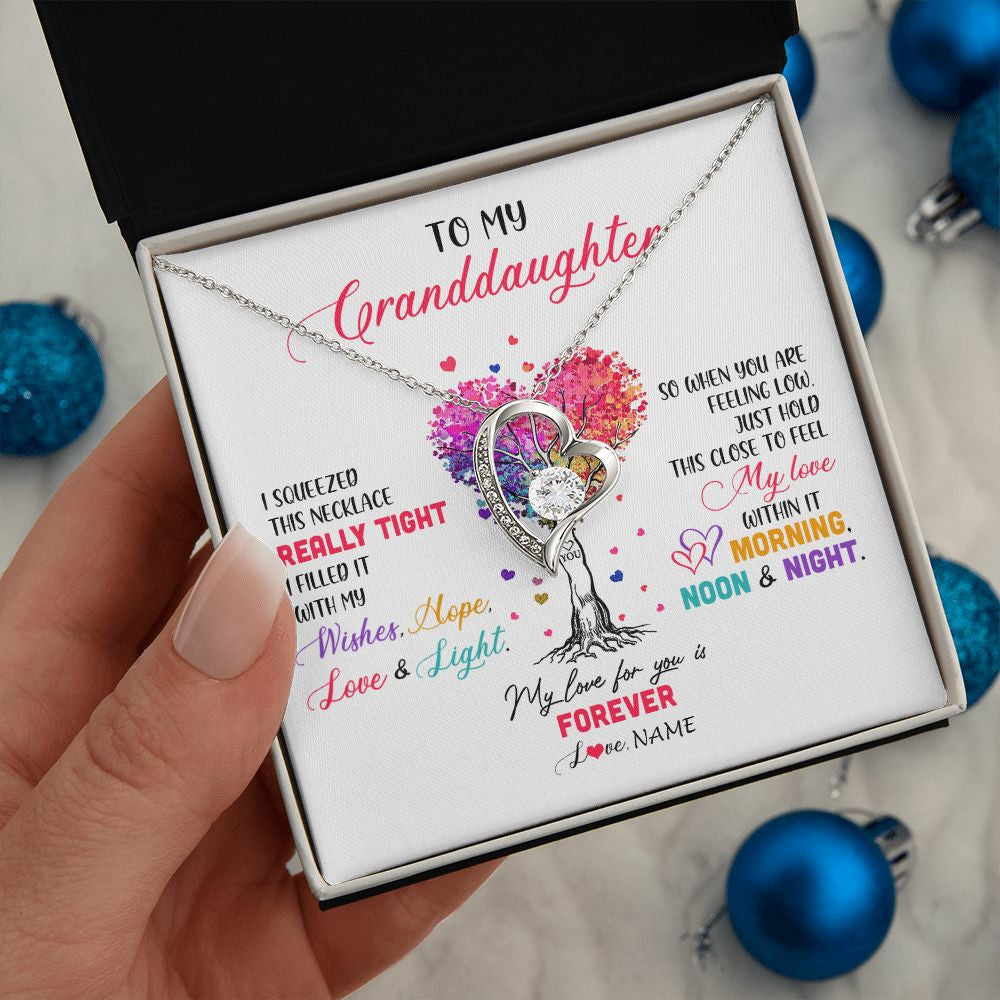 TO MY
Granddaughter
I SQUEEZED
THIS NECKLACE
REALLY TIGHT
I FILLED IT
WITH MY
Wishes, Hope,
Love & Light.
SO WHEN YOU ARE
FEELING LOW.
JUST HOLD
THIS CLOSE TO FEEL
My love
WITHIN IT
MORNING,
NOON & NIGHT.
YOU
My love for you is
FOREVER
Love, NAME